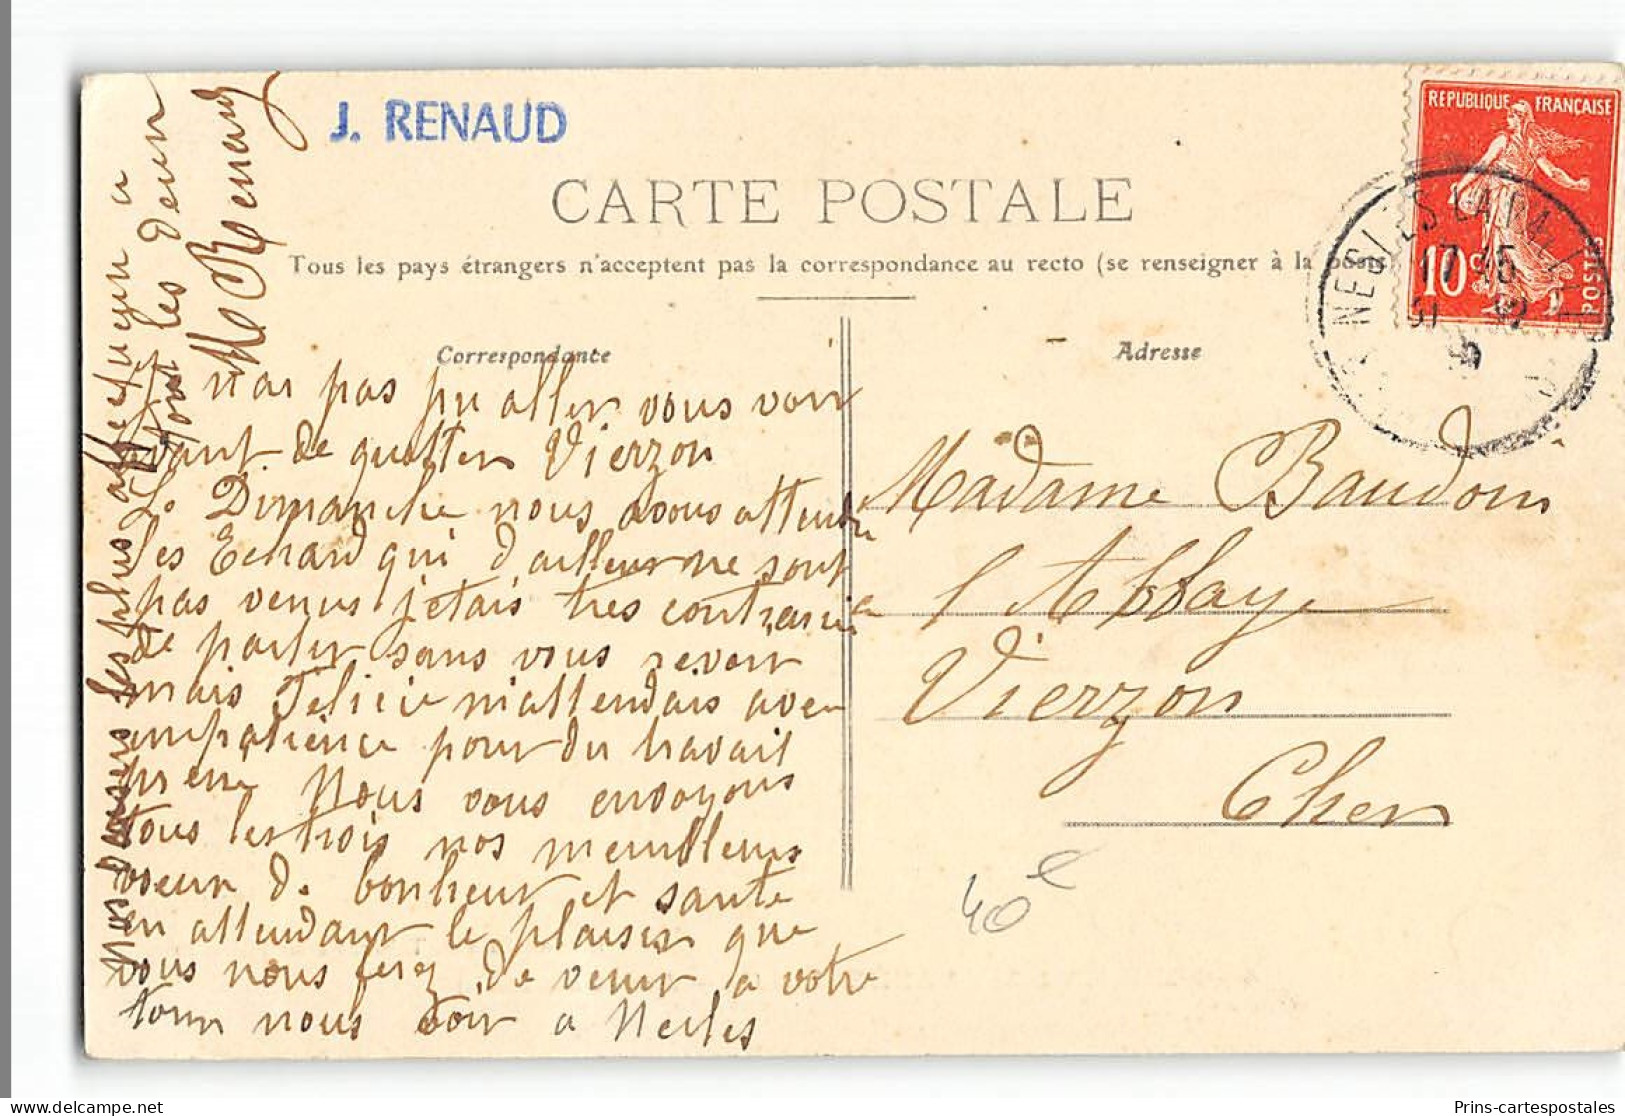 J. RENAUD
CARTE POSTALE
Tous les pays étrangers n'acceptent pas la correspondance au recto (se renseigner à la
Correspondance
Adresse
REPUBLIQUE FRANÇAISE
10 c
POSTES
17 15
J nai pas pu aller vous voir
avant de quitter Vierzon
Le Dimanche nous avons attendu
les Echard qui d'ailleurs ne sont
pas venus j'etais tres contrarié
de partir sans vous revoir
mais Felicie m'attendais avec
impatience pour du travail
Nous vous envoyons
tous les trois nos meilleurs
voeux de bonheur et sante
en attendant le plaisir que
vous nous ferez de venir a votre
tour nous voir a Nesles
Nos baisers les plus affectueux a
tous les deux
M Renaud
Madame Baudoin
l'Abbaye
Vierzon
Cher
40 €
Prins-cartespostales